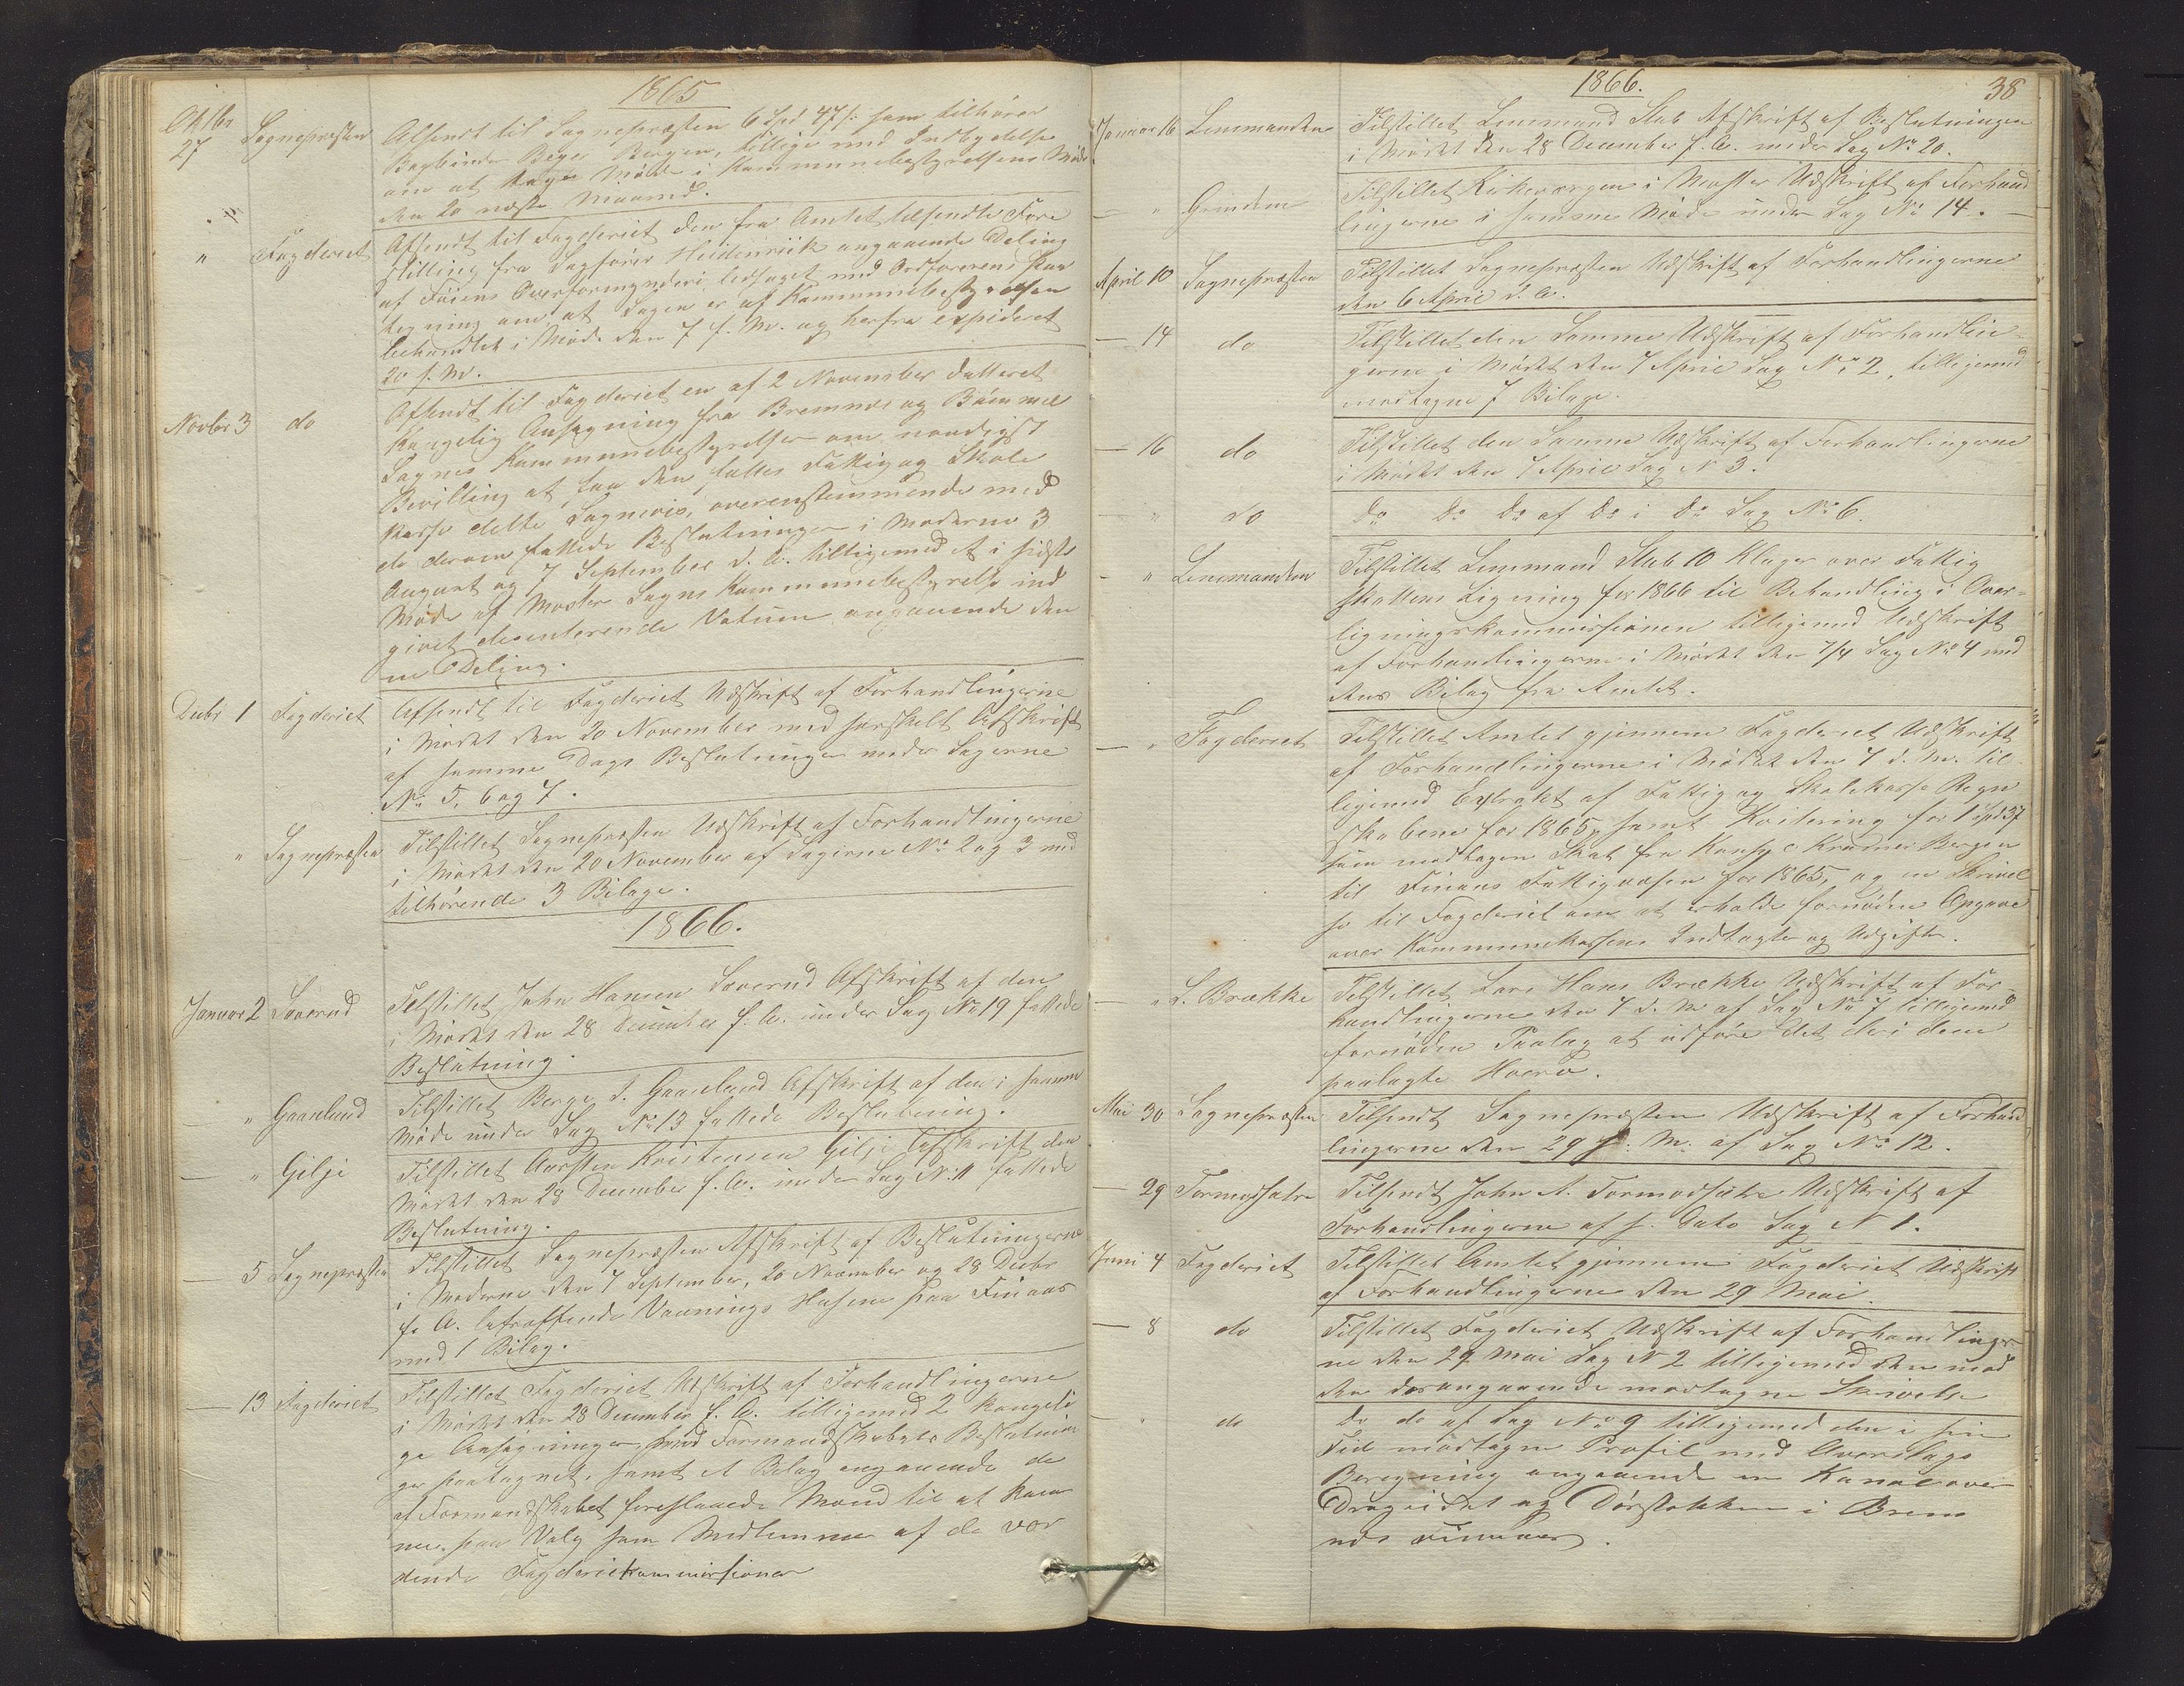 1865
Oktbr 27 Sognepræsten Afsendt til Sognepræsten 6 Spd 47 s: som tilhører
Bogbinder Beyer Bergen, tillige med Indbydelse
om at tage Møde i Kommunebestyrelsens Møde
den 20 næste Maaned.
" Fogderiet Afsendt til Fogderiet den fra Amtet tilsendte Fore
stilling fra Sagfører Heidenriik angaaende Deling
af Føiens Overformynderi, ledsaget med Ordførerens Paa
tegning om at Sagen er af Kommunebestyrelsen
behandlet i Møde den 7 f. M. og herfra expideret
20 f. M.
Novbr 3 do Afsendt til Fogderiet en af 2 November datteret
Kongelig Ansøgning fra Bremnæs og Bømmel
Sognes Kommunebestyrelser om naadigst
Bevilling at faa den fælles Fattig og Skole
kasse delte Sognevis, overenstemmende med
de derom fattede Beslutninger i Møderne 3
August og 7 September d. A. tilligemed et i sidste
Møde af Moster Sogns Kommunebestyrelse ind
givet desenterende Votum angaaende den
ne Deling.
Decbr 1 Fogderiet Afsendt til Fogderiet Udskrift af Forhandlingerne
i Mødet den 20 November med særskelt Afskrift
af samme Dags Beslutninger under Sagerne
No 5, 6 og 7.
" Sognepræsten Tilstillet Sognepræsten Udskrift af Forhandlingerne
i Mødet den 20 November af Sagerne No 2 og 3 med
tilhørende 3 Bilage.
1866.
Januar 2 Sørerud Tilstillet John Hansen Sørerud Afskrift af den
i Mødet den 28 December f. A. under Sag No 19 fattede
Beslutning.
— " Gaaselund Tilstillet Berge J. Gaaselund Afskrift af den i samme
Møde under Sag No 13 fattede Beslutning.
— " Gilje Tilstillet Kristensen Gilje Afskrift den
Mødet den 28 December f. A. under Sag N. 11 fattede
Beslutning.
— 5 Sognepræsten Tilstillet Sognepræsten Afskrift af Beslutningerne
i Møderne den 7 September, 20 November og 28 Decbr
f. A. betræffende Vaanings Husene paa Finaas
med 1 Bilag.
— 13 Fogderiet Tilstillet Fogderiet Udskrift af Forhandlingerne
i Mødet den 28 December f. A. tilligemed 2 kongeli
ge Ansøgninger, med Formandskabets Beslutnin
ger paategnet, samt et Bilag angaaende de
af Formandskabet foreslaaede Mænd til at kom
me paa Valg som Medlemmer af de vor
dende Fogderiekommissioner
1866. 38
Januar 16 Lensmanden Tilstillet Lensmand Stub Afskrift af Beslutningen
i Mødet den 28 December f. A. under Sag No 20.
— " Grindem Tilstillet Kirkeværgen i Moster Udskrift af Forhand
lingerne i samme Møde under Sag No 14. —
April 10 Sognepræsten Tilstillet Sognepræsten Udskrift af Forhandlingerne
den 6 April d. A.
— 14 do Tilstillet den Samme Udskrift af Forhandlin
gerne i Mødet den 7 April Sag No 2, tilligemed
modtagne 7 Bilage.
— 16 do Tilstillet den Samme Udskrift af Forhandlingerne
i Mødet den 7 April Sag N 3.
— " do Do Do Do af Do i Do Sag No 6.
— " Lensmanden Tilstillet Lensmand Stub 10 Klager over Fattig
skattens Ligning for 1866 til Behandling i Over=
ligningskommissionen tilligemed Udskrift
af Forhandlingerne i Mødet den 7/4 Sag No 4 med
dens Bilag fra Amtet.
— " Fogderiet Tilstillet Amtet gjennem Fogderiet Udskrift
af Forhandlingerne i Mødet den 7 d. M. til
ligemed Extrakt af Fattig og Skolekasse Regn
skabene for 1865, samt Kvitering for 1 Spd 57
som modtagen Skat fra Krámer Bergen
til Finaas Fattigvæsen for 1865, og en Skrivel
se til Fogderiet om at erholde fornøden Opgave
over Kommunekassens Indtægte og Udgifte.
— " L. Brække Tilstillet Lars Hans Brække Udskrift af For=
handlingerne den 7 d. M. af Sag No 7 tilligemed
fornøden Paalæg at udføre det deri dem
paalagte Hverv.
Mai 30 Sognepræsten Tilsendt Sognepræsten Udskrift af Forhand
lingerne den 29 d. M. af Sag No 12.
— 29 Tormodsætre Tilsendt John A. Tormodsætre Udskrift af
Forhandlingerne af s. Dato Sag N 1.
Juni 4 Fogderiet Tilstillet Amtet gjennem Fogderiet Udskrift
af Forhandlingerne den 29 Mai.
— 8 do Tilstillet Fogderiet Udskrift af Forhandlinger
ne den 29 Mai Sag N 2 tilligemed den med
den derangaaende modtagne Skrivelse
— " do Do do af Sag No 9 tilligemed den i sin
Tid modtagne Profil med Overslags
Beregning angaaende en Kanal over
Drageidet og Dørstokken i Brem
næs